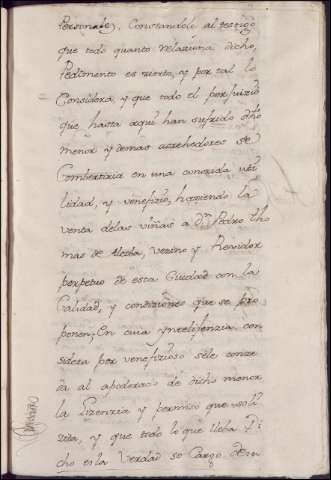 Personales, Constandole al testigo
que todo quanto relaziona dicho
Pedimento es zierto, y por tal lo
Considera, y que todo el perjuizio
que hasta aqui han sufrido dho
menor y demas acrehedores se
Combertiria en una conozida uti
lidad, y venefizio, haziendo la
venta delas viñas a Dn. Pedro tho
mas de Alcala, vezino y Rexidor
perpetuo de esta Ciudad con la
Calidad, y condiziones que se pro
ponen; En cuia ynteligenzia con
sidera por venefizioso sele conze
da al apoderado de dicho menor
la Lizenzia y permiso que soli
zita, y que todo lo que lleba Di
cho es la Verdad so Cargo de su